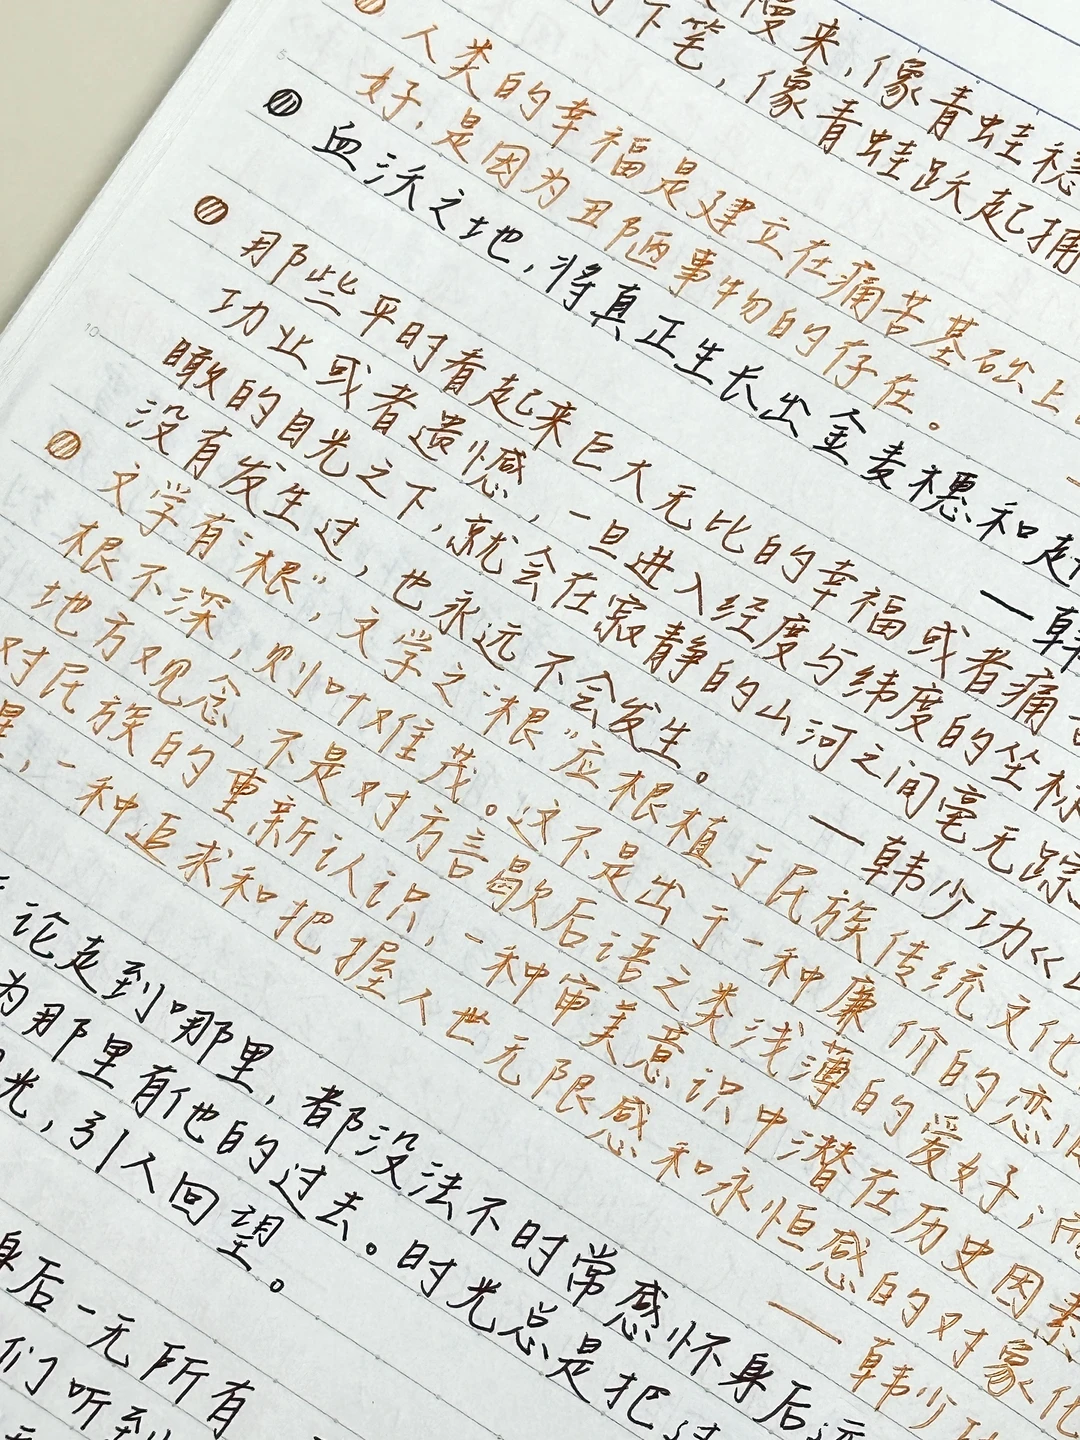 慢来，像青蛙稳
下笔，像青蛙跃起捕
人类的幸福是建立在痛苦基础上
好，是因为丑陋事物的存在。
血沃之地，将真正生长出金麦穗和赶
一韩
那些平时看起来巨大无比的幸福或者痛苦
功业或者遗憾，一旦进入经度与纬度的坐标
瞰的目光之下，就会在寂静的山河之间毫无踪
没有发生过，也永远不会发生。
一韩少功《山
文学有“根”，文学之“根”应根植于民族传统文化
根不深，则叶难茂。这不是出于一种廉价的恋旧
地方观念，不是对方言歇后语之类浅薄的爱好；而
对民族的重新认识，一种审美意识中潜在历史因素
醒，一种追求和把握人世无限感和永恒感的对象化
一韩少功
论走到哪里，都没法不时常感怀身后远
为那里有他的过去。时光总是把过
光，引人回望。
身后一无所有
们听到